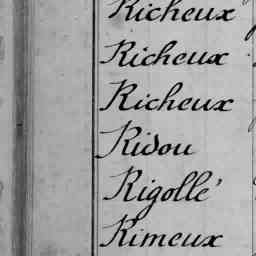 Richeux
Richeux
Richeux
Ridou
Rigollé
Rimeux